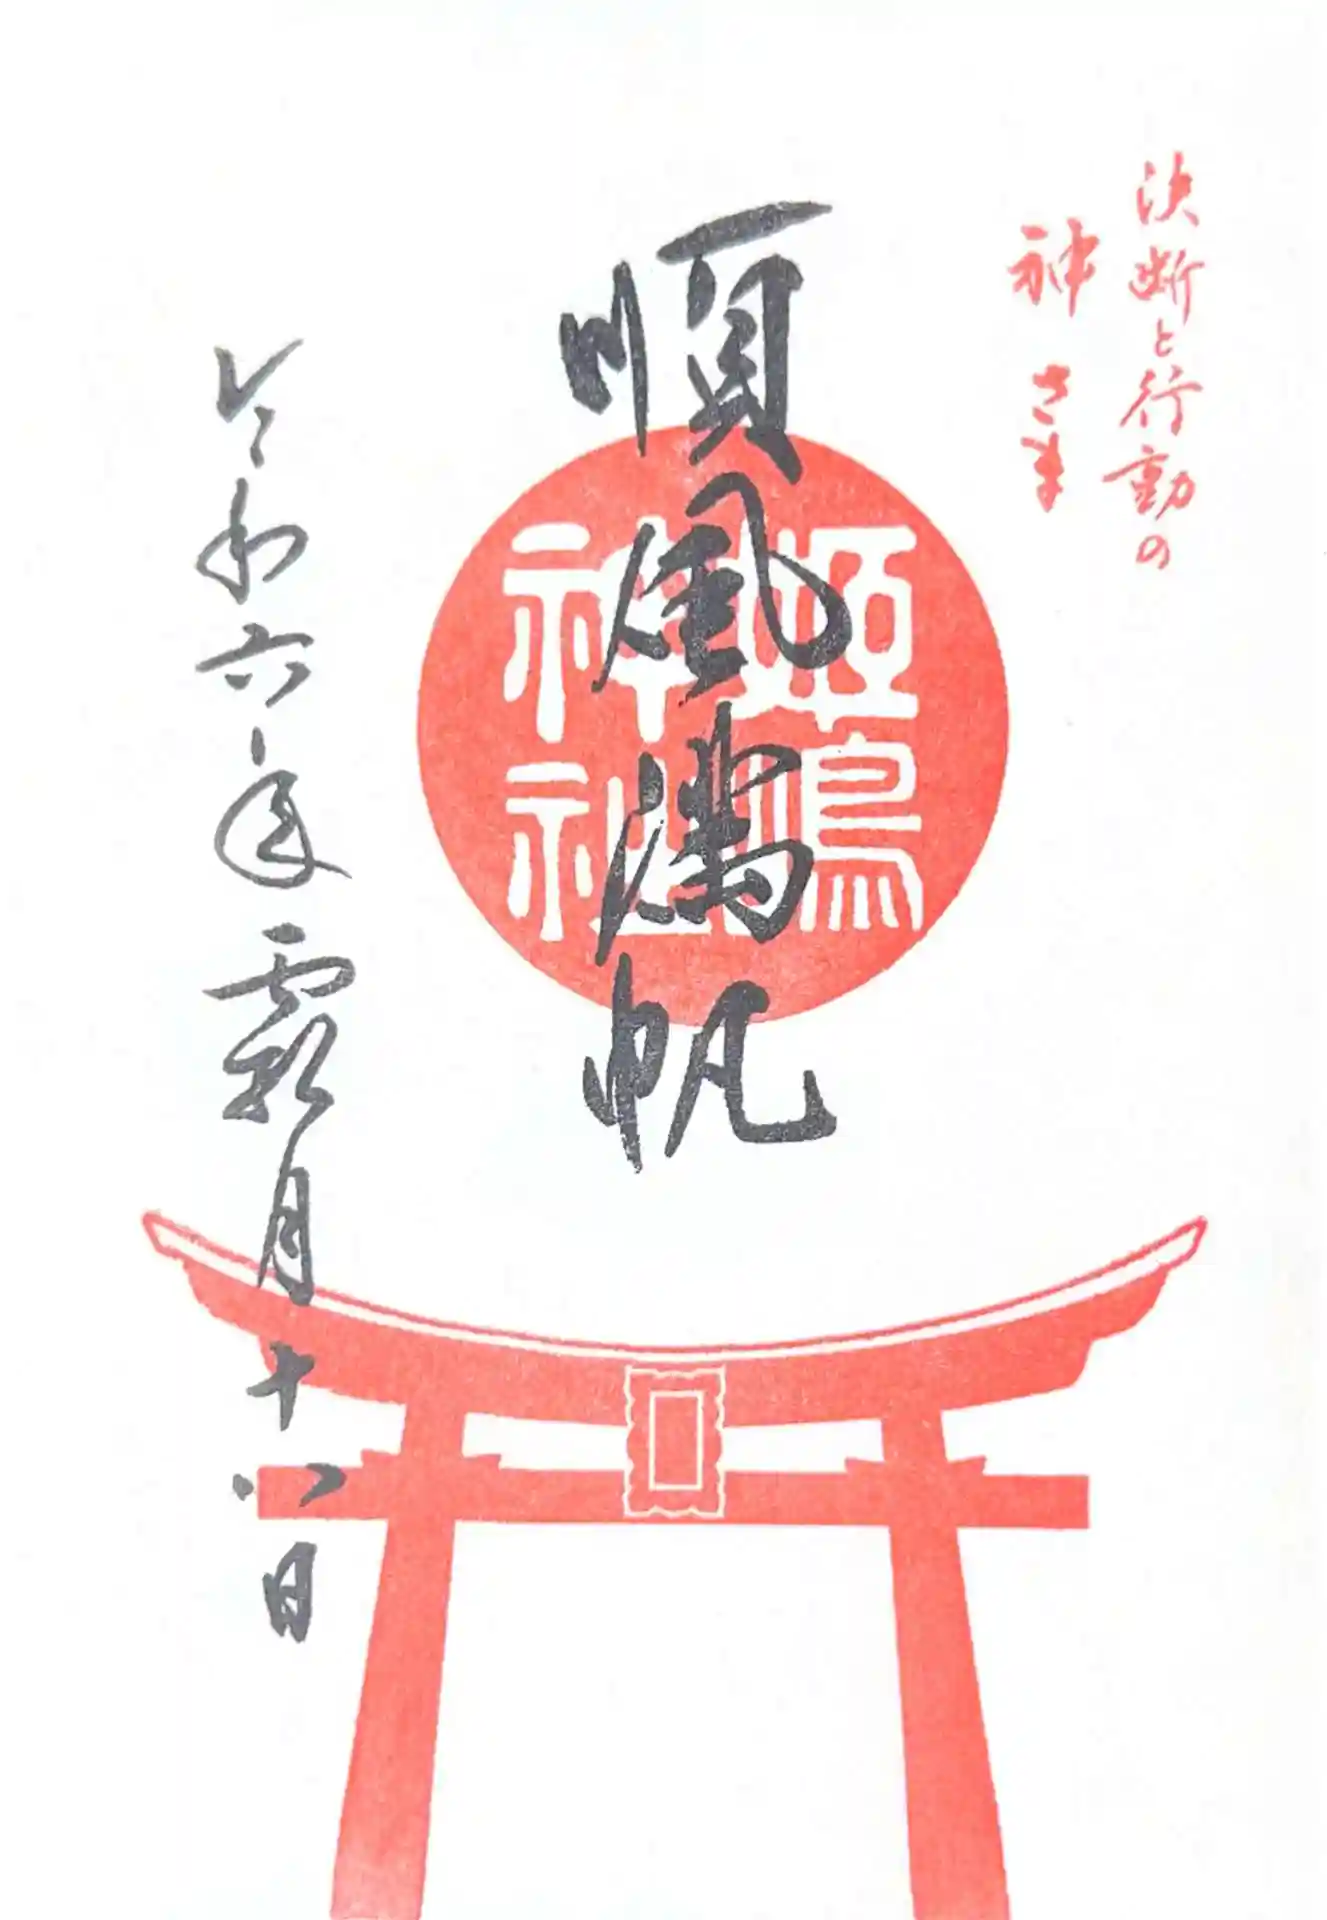 決断と行動の
神さま
順風満帆
姫嶋
神社
令和六年霜月十八日